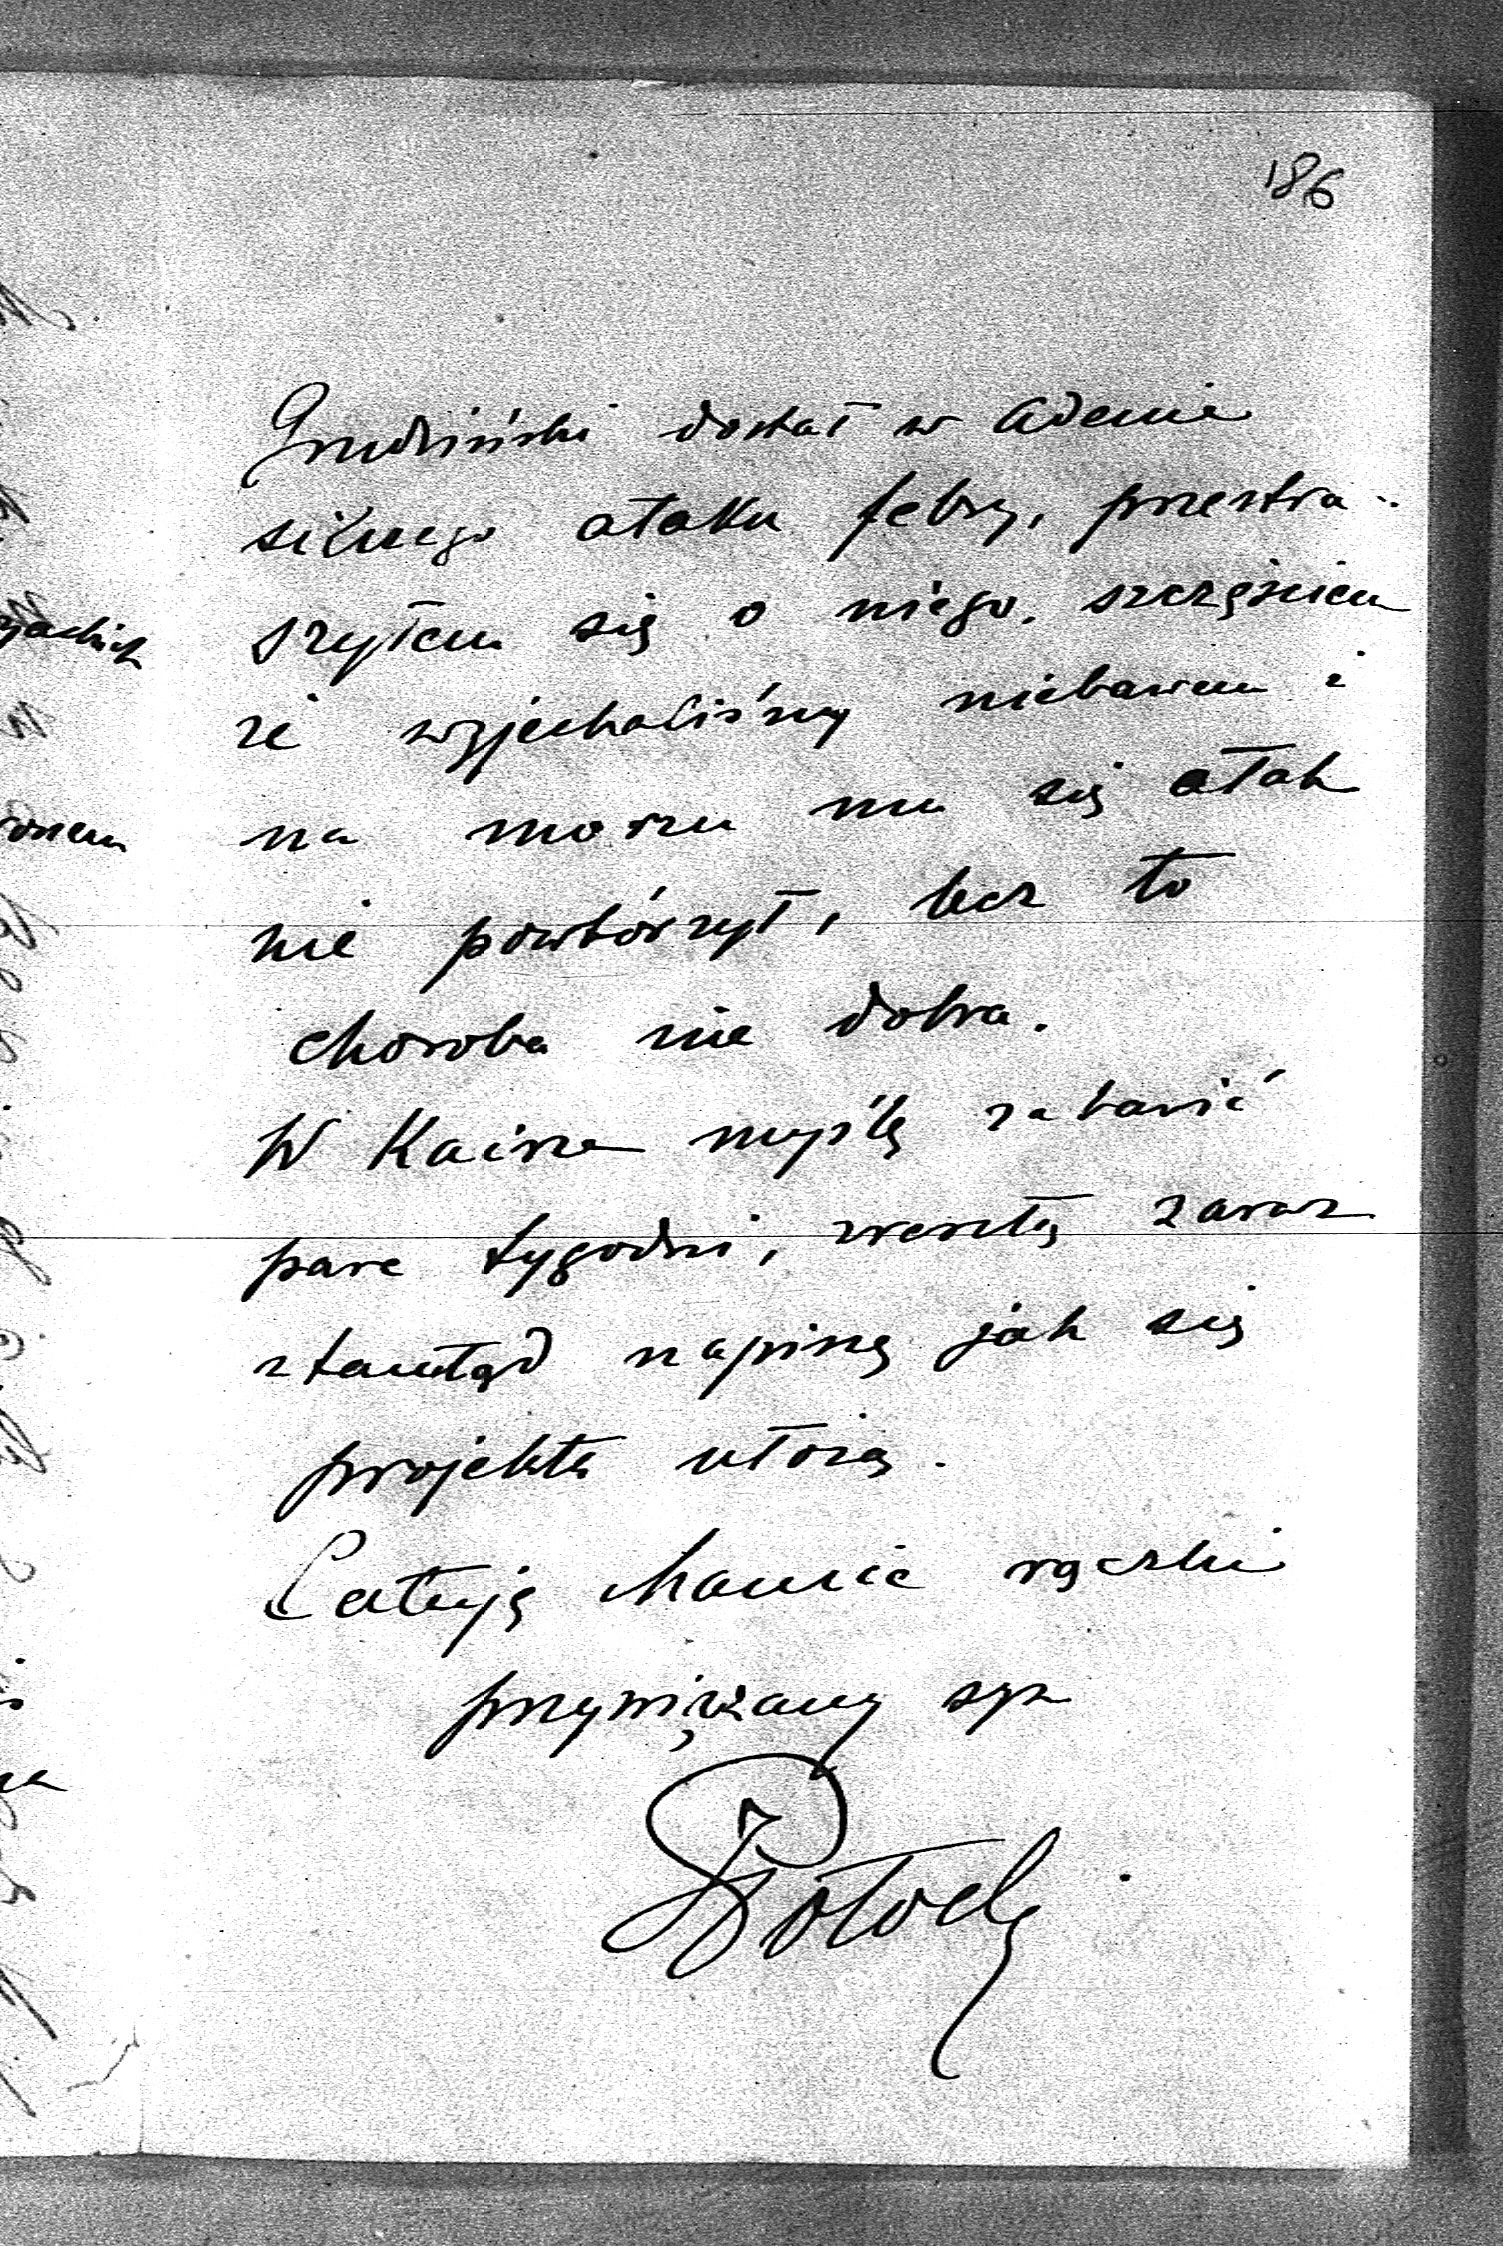 186
Grudziński dostał w Adenie
silnego ataku febry, przestra-
szyłem się o niego, szczęściem
że wyjechaliśmy niebawem i
na morzu mu się atak
nie powtórzył, lecz to
choroba nie dobra.
W Kairze myślę zabawić
parę tygodni, zresztą zaraz
ztamtąd napiszę jak się
projekta ułożą.
Całuję Mamie rączki
przywiązany syn
Potocki